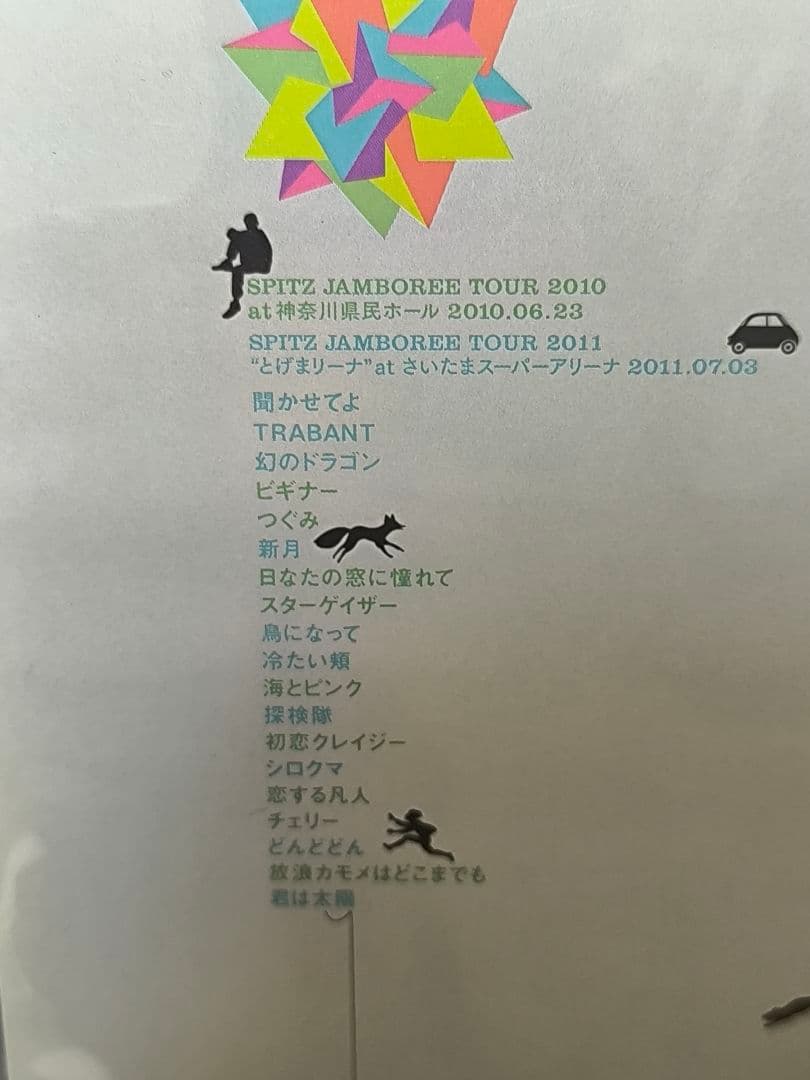 SPITZ JAMBOREE TOUR 2010
at 神奈川県民ホール 2010.06.23
SPITZ JAMBOREE TOUR 2011
“とげまリーナ”at さいたまスーパーアリーナ 2011.07.03
聞かせてよ
TRABANT
幻のドラゴン
ビギナー
つぐみ
新月
日なたの窓に憧れて
スターゲイザー
鳥になって
冷たい頬
海とピンク
探検隊
初恋クレイジー
シロクマ
恋する凡人
チェリー
どんどどん
放浪カモメはどこまでも
君は太陽